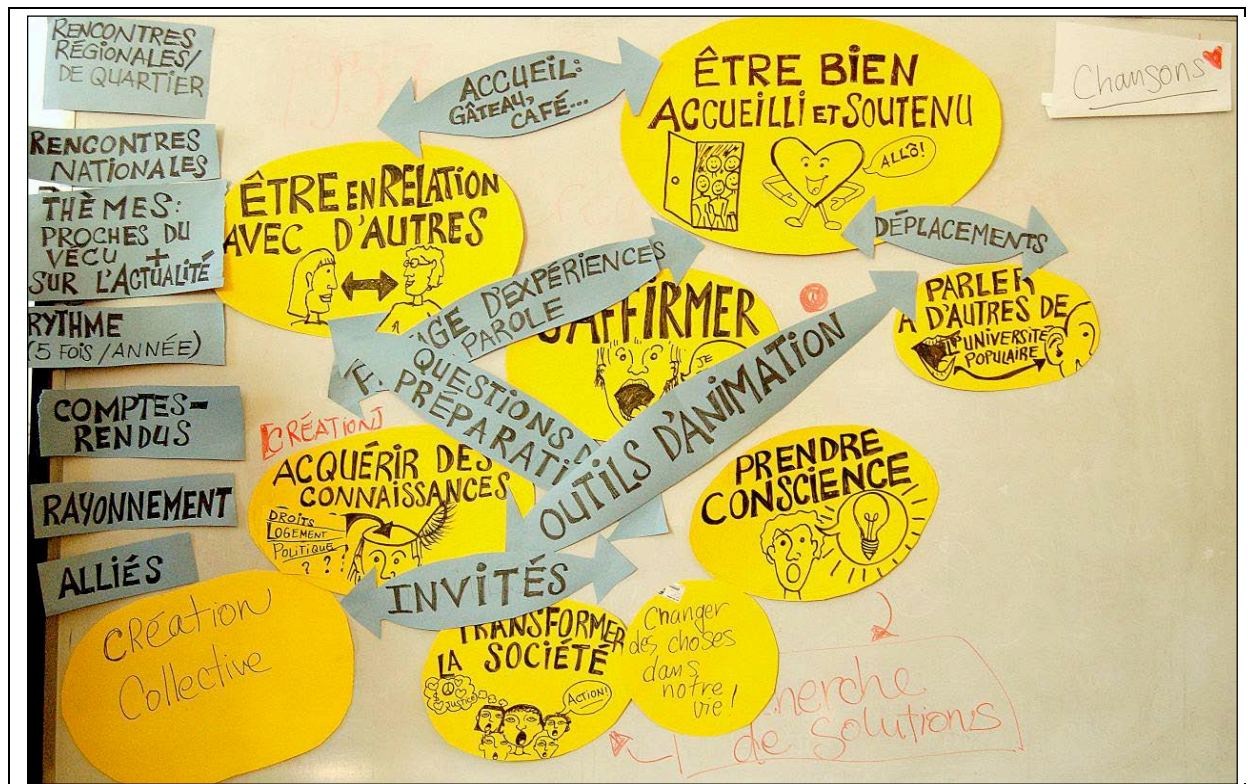 RENCONTRES
RÉGIONALES/
DE QUARTIER
RENCONTRES
NATIONALES
THÈMES:
PROCHES DU
VÉCU +
SUR L'ACTUALITÉ
RYTHME
(5 FOIS/ANNÉE)
COMPTES-
RENDUS
RAYONNEMENT
ALLIÉS
CRÉATION
Collective
ACCUEIL:
GÂTEAU,
CAFÉ...
ÊTRE BIEN
ACCUEILLI ET SOUTENU
ALLÔ!
Chansons
ÊTRE EN RELATION
AVEC D'AUTRES
DÉPLACEMENTS
PARLER
À D'AUTRES DE
UNIVERSITÉ
POPULAIRE
D'EXPÉRIENCES
PAROLE
S'AFFIRMER
JE
QUESTIONS
OUTILS D'ANIMATION
CRÉATION
ACQUÉRIR DES
CONNAISSANCES
DROITS
LOGEMENT
POLITIQUE
? ? ?
PRENDRE
CONSCIENCE
INVITÉS
TRANSFORMER
LA SOCIÉTÉ
JUSTICE
ACTION!
Changer
des choses
dans
notre
vie!
de solutions